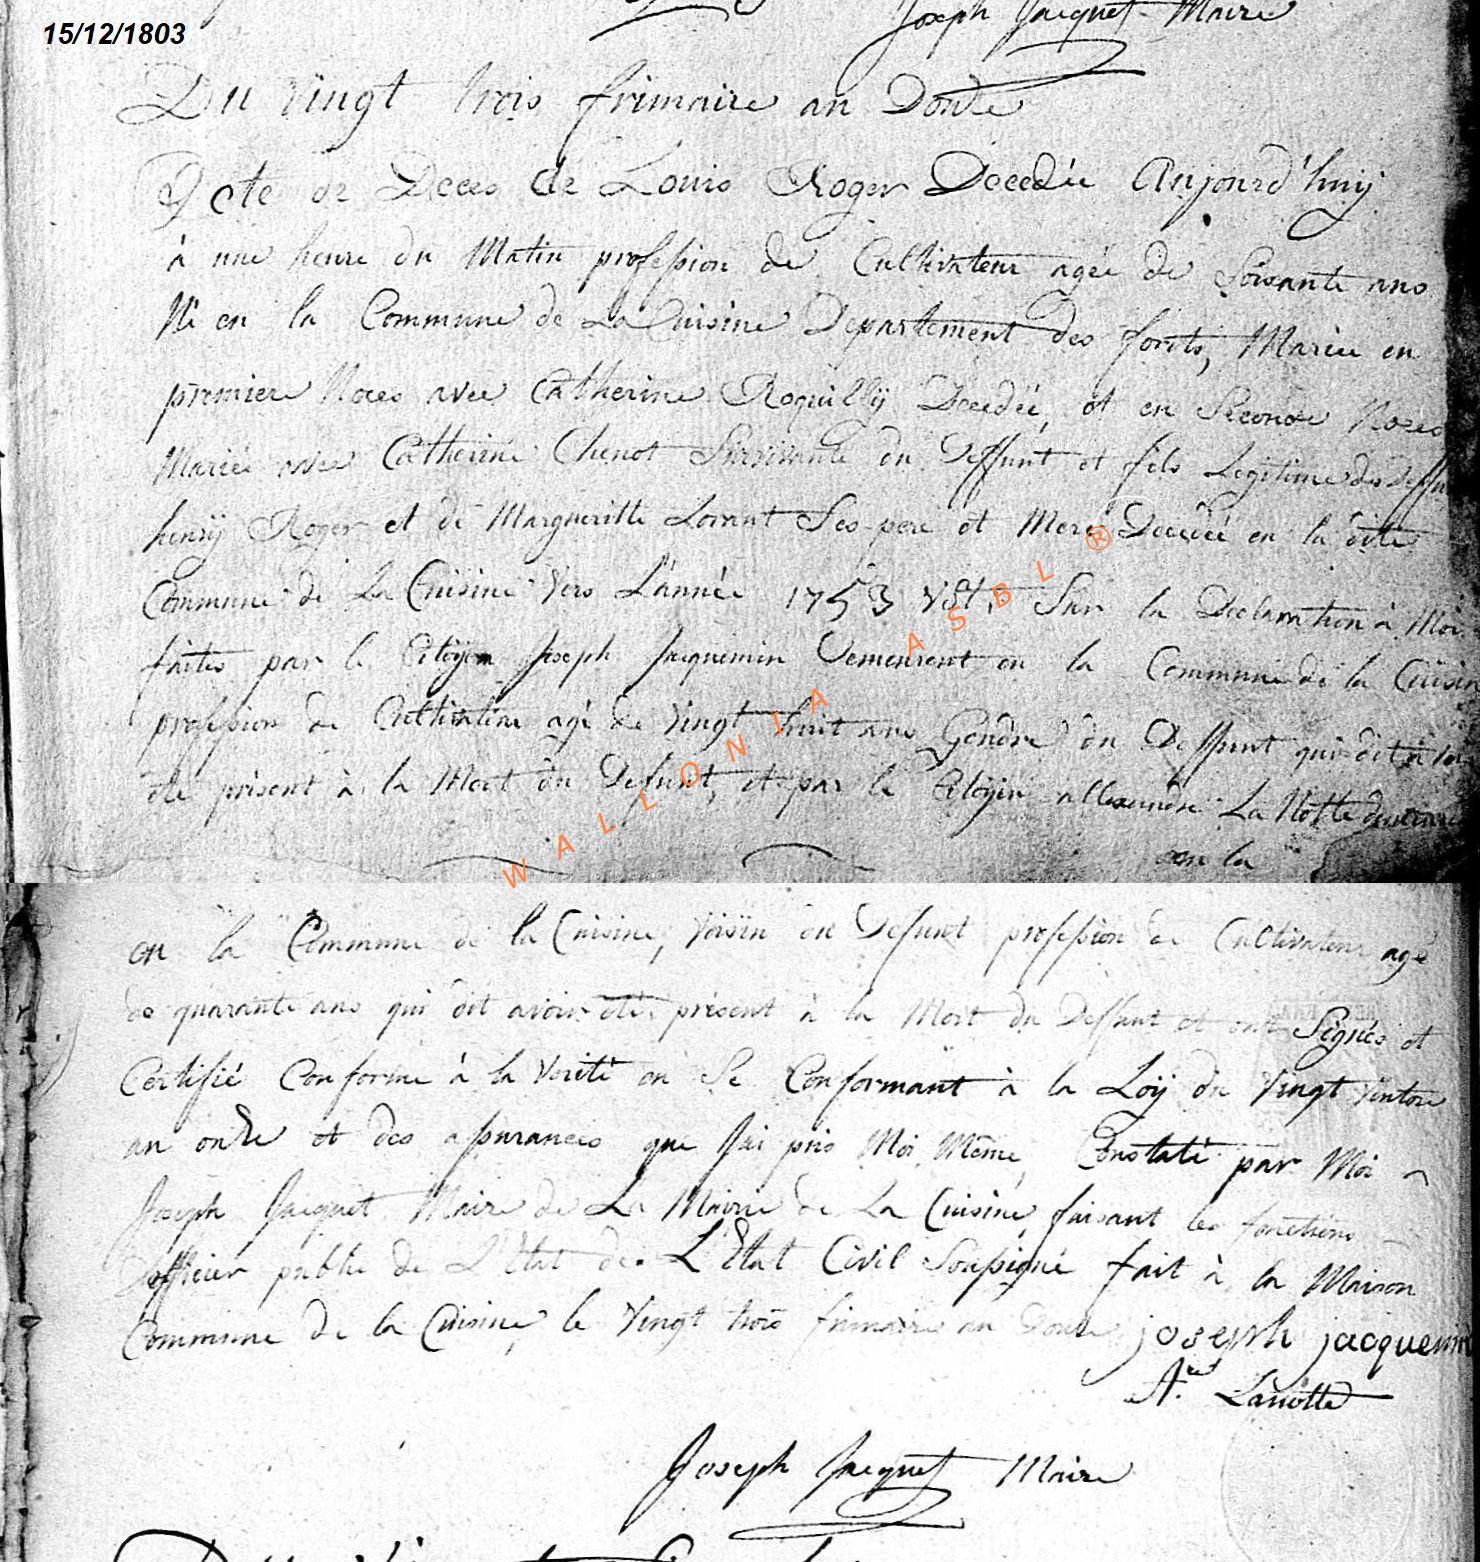 15/12/1803
Joseph Jacquet Maire
Du vingt trois frimaire an Douze
Acte de Deces de Louis Roger Decedée Aujourd'huÿ
à une heure du Matin profession de Cultivateur agée de Soisante ans
Né en la Commune de La Cuisine Departement des forêts, Mariée en
premiere Noces avec Catherine Roquillÿ Decedée, et en Seconde Noces
Mariée avec Catherine Chenot Survivante du Deffunt et fils Legitime des Deffu
henrÿ Roger et de Margueritte Lorent Ses pere et Mere Decedée en la dite
Commune de La Cuisine Vers L'année 1753 Vst, Sur la Declaration à Moi
faites par le Citoÿen Joseph Jacquemin Demeurant en la Commune de la Cuisin
profession de Cultivateur agé de Vingt huit ans Gendre du Deffunt qui dit avoir
été présent à la Mort du Defunt, et par le Citoÿen allexandre La Notte demeurant
en la
WALLONIA ASBL ®
en la Commune de la Cuisine, Voisin du Defunt profession de Cultivateur agé
de quarante ans qui dit avoir été présent à la Mort du Deffunt et ont Signés et
Certifié Conforme à la Verité en Se Conformant à la Loÿ du Vingt Ventose
an onze et des assurances que J'ai pris Moi Même, Constaté par Moi
Joseph Jacquet Maire de La Mairie de La Cuisine faisant les fonctions
d'officier public de L'Etat de L'Etat Civil Soussigné fait à la Maison
Commune de la Cuisine, le Vingt trois frimaire an Douze joseph jacquemin
A.re Lanotte
Joseph Jacquet Maire